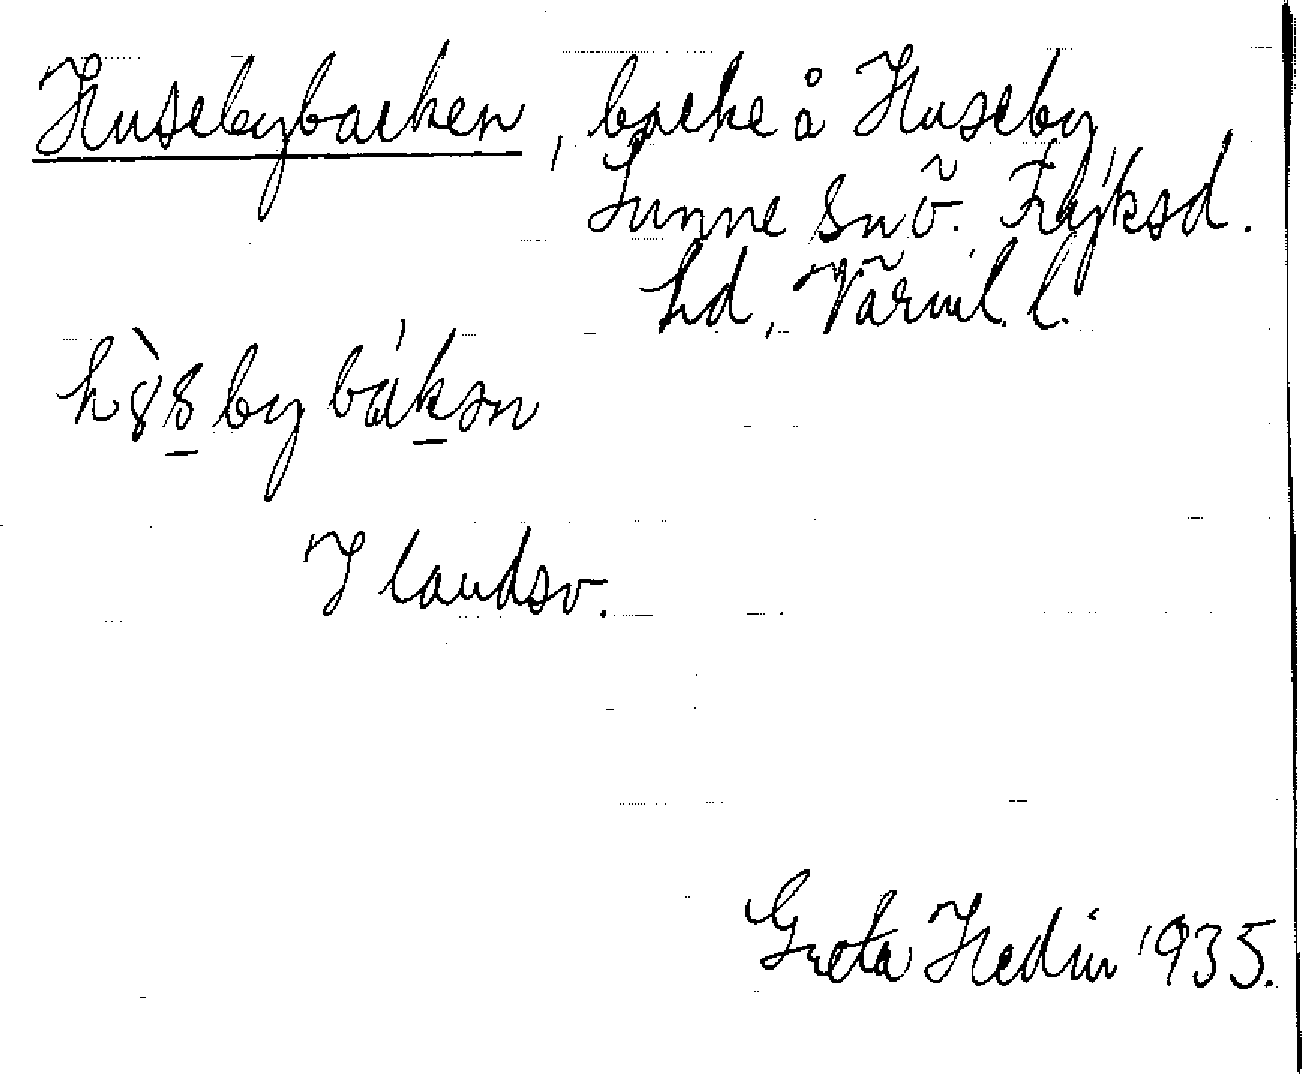 Husebybacken, backe å Huseby
Sunne snö. Fryksd.
hd, Värml. l.
I landsv.
Greta Hedin 1935.